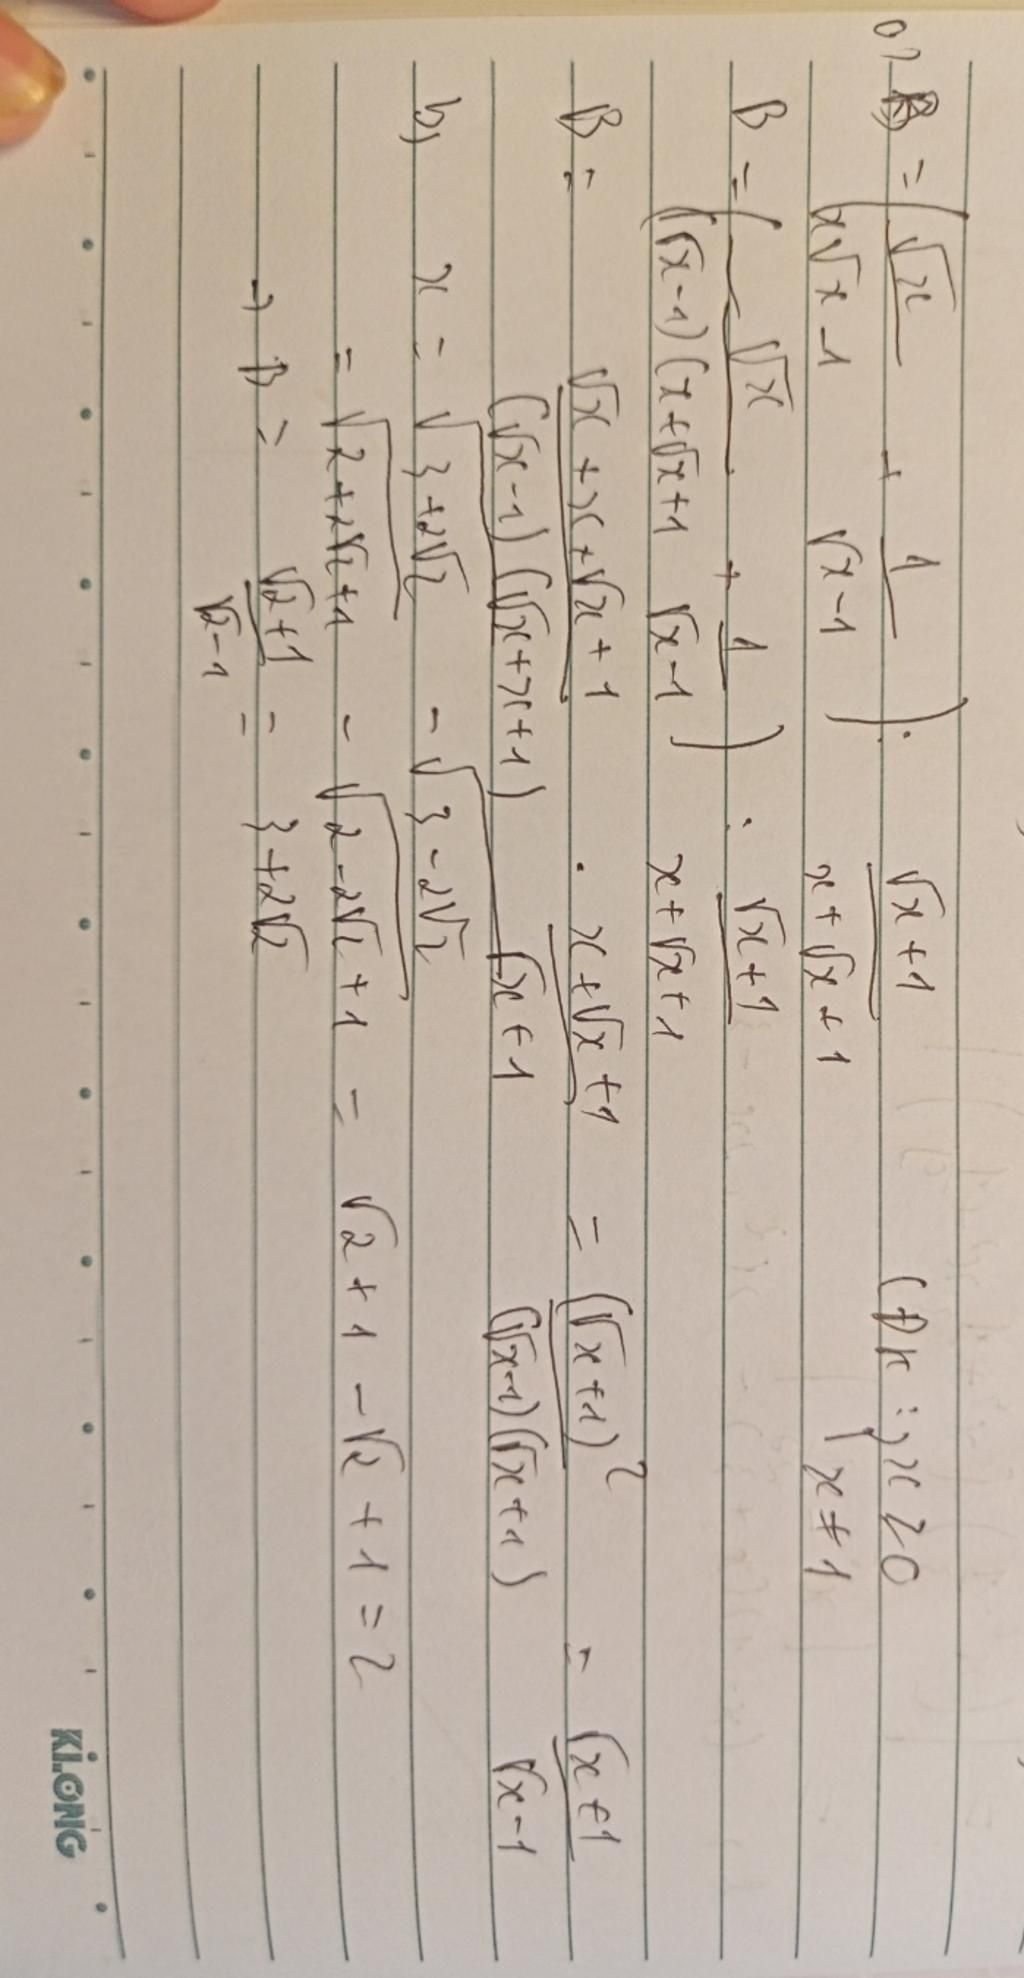 a) B = ( √x / (x√x - 1) + 1 / (√x - 1) ) . (√x + 1) / (x + √x + 1) (Đk : { x ≥ 0 { x ≠ 1
B = ( √x / ((√x - 1)(x + √x + 1) + 1 / (√x - 1) ) . (√x + 1) / (x + √x + 1)
B = (√x + x + √x + 1) / ((√x - 1)(√x + x + 1)) . (x + √x + 1) / (√x + 1) = (√x + 1)² / ((√x - 1)(√x + 1)) = (√x + 1) / (√x - 1)
b, x = √(3 + 2√2) - √(3 - 2√2)
= √(2 + 2√2 + 1) - √(2 - 2√2 + 1) = √2 + 1 - √2 + 1 = 2
→ B = (√2 + 1) / (√2 - 1) = 3 + 2√2
KLONG